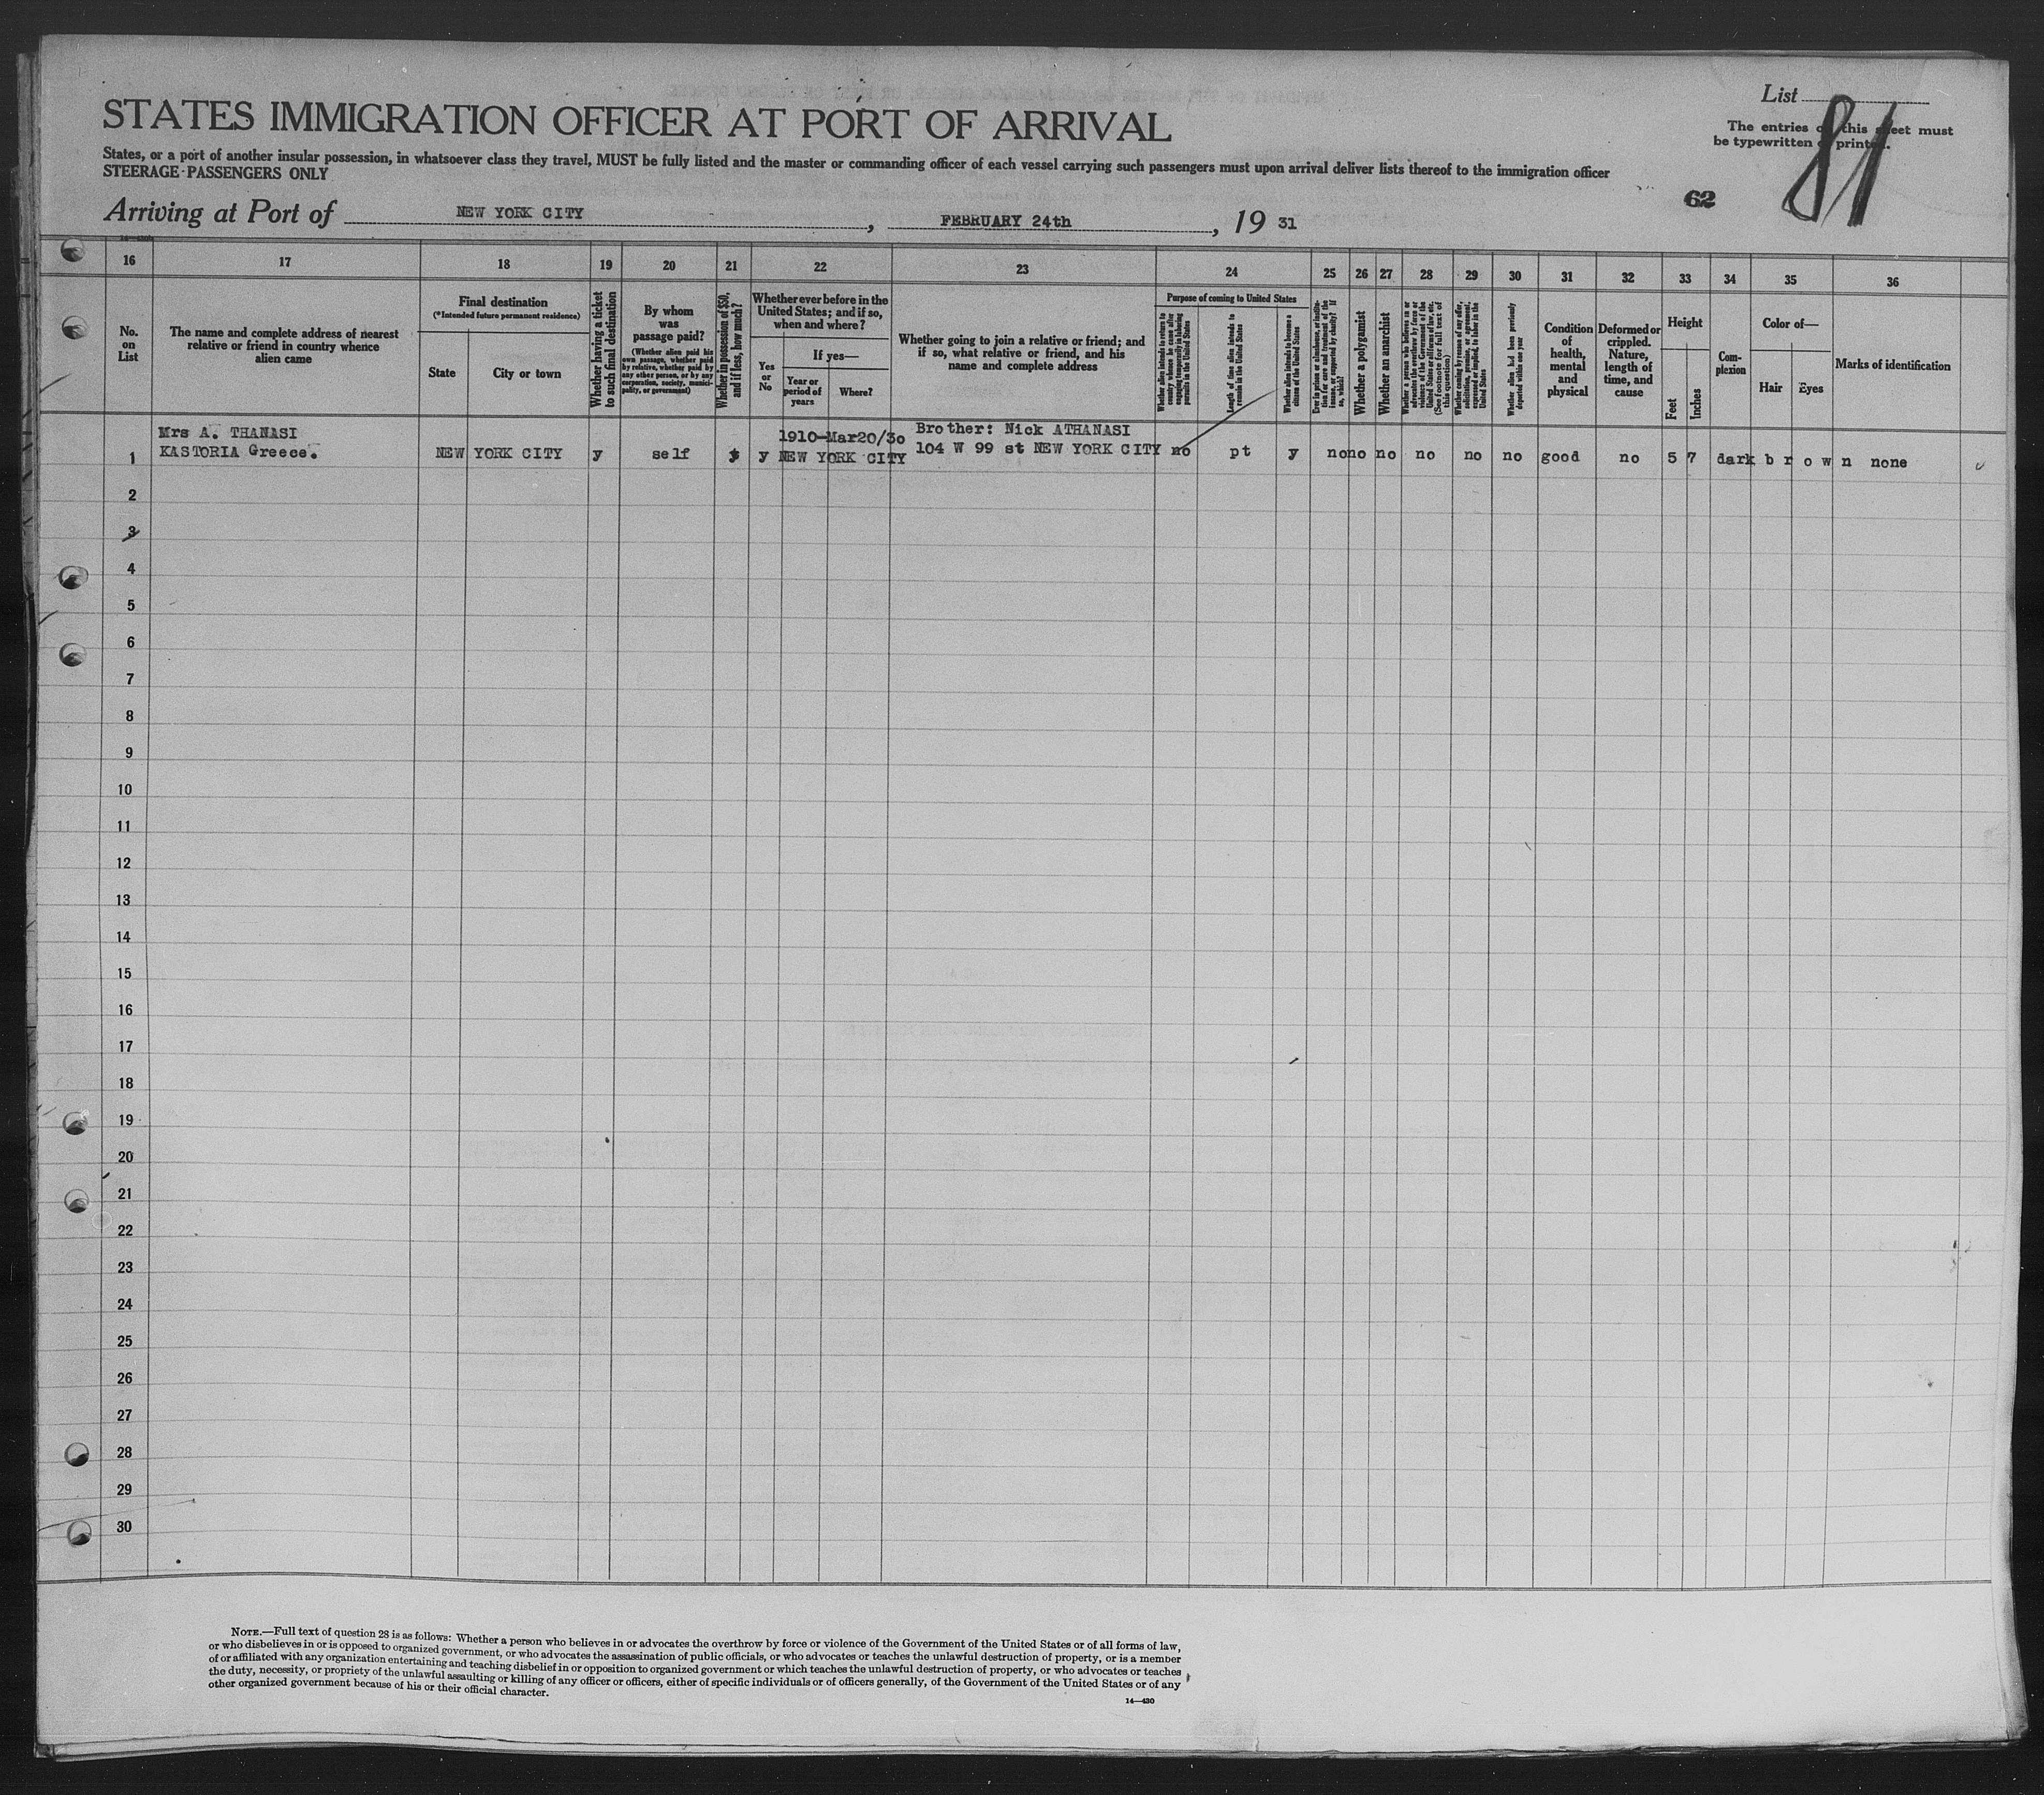 List
81
The entries on this sheet must
be typewritten or printed.
STATES IMMIGRATION OFFICER AT PORT OF ARRIVAL
States, or a port of another insular possession, in whatsoever class they travel, MUST be fully listed and the master or commanding officer of each vessel carrying such passengers must upon arrival deliver lists thereof to the immigration officer
STEERAGE PASSENGERS ONLY
62
Arriving at Port of NEW YORK CITY, FEBRUARY 24th, 19 31
16 17 18 19 20 21 22 23 24 25 26 27 28 29 30 31 32 33 34 35 36
No.
on
List
The name and complete address of nearest
relative or friend in country whence
alien came
Final destination
(*Intended future permanent residence)
State
City or town
Whether having a ticket
to such final destination
By whom
was
passage paid?
(Whether alien paid his
own passage, whether paid
by relative, whether paid by
any other person, or by any
corporation, society, munici-
pality, or government)
Whether in possession of $50,
and if less, how much?
Whether ever before in the
United States; and if so,
when and where?
Yes
or
No
If yes—
Year or
period of
years
Where?
Whether going to join a relative or friend; and
if so, what relative or friend, and his
name and complete address
Purpose of coming to United States
Whether alien intends to return to
country whence he came after
engaging temporarily in laboring
pursuits in the United States
Length of time alien intends to
remain in the United States
Whether alien intends to become a
citizen of the United States
Ever in prison or almshouse, or institu-
tion for care and treatment of the
insane, or supported by charity? If
so, which?
Whether a polygamist
Whether an anarchist
Whether a person who believes in or
advocates the overthrow by force or
violence of the Government of the
United States or all forms of law, etc.
(See footnote for full text of
this question)
Whether coming by reason of any offer,
solicitation, promise, or agreement,
expressed or implied, to labor in the
United States
Whether alien had been previously
deported within one year
Condition
of
health,
mental
and
physical
Deformed or
crippled.
Nature,
length of
time, and
cause
Height
Feet
Inches
Com-
plexion
Color of—
Hair
Eyes
Marks of identification
Mrs A. THANASI 1910-Mar20/30 Brother: Nick ATHANASI
1 KASTORIA Greece. NEW YORK CITY y self $ y NEW YORK CITY 104 W 99 st NEW YORK CITY no pt y no no no no no no good no 5 7 dark b r o w n none
2
3
4
5
6
7
8
9
10
11
12
13
14
15
16
17
18
19
20
21
22
23
24
25
26
27
28
29
30
NOTE.—Full text of question 28 is as follows: Whether a person who believes in or advocates the overthrow by force or violence of the Government of the United States or of all forms of law,
or who disbelieves in or is opposed to organized government, or who advocates the assassination of public officials, or who advocates or teaches the unlawful destruction of property, or is a member
of or affiliated with any organization entertaining and teaching disbelief in or opposition to organized government or which teaches the unlawful destruction of property, or who advocates or teaches
the duty, necessity, or propriety of the unlawful assaulting or killing of any officer or officers, either of specific individuals or of officers generally, of the Government of the United States or of any
other organized government because of his or their official character.
14—430